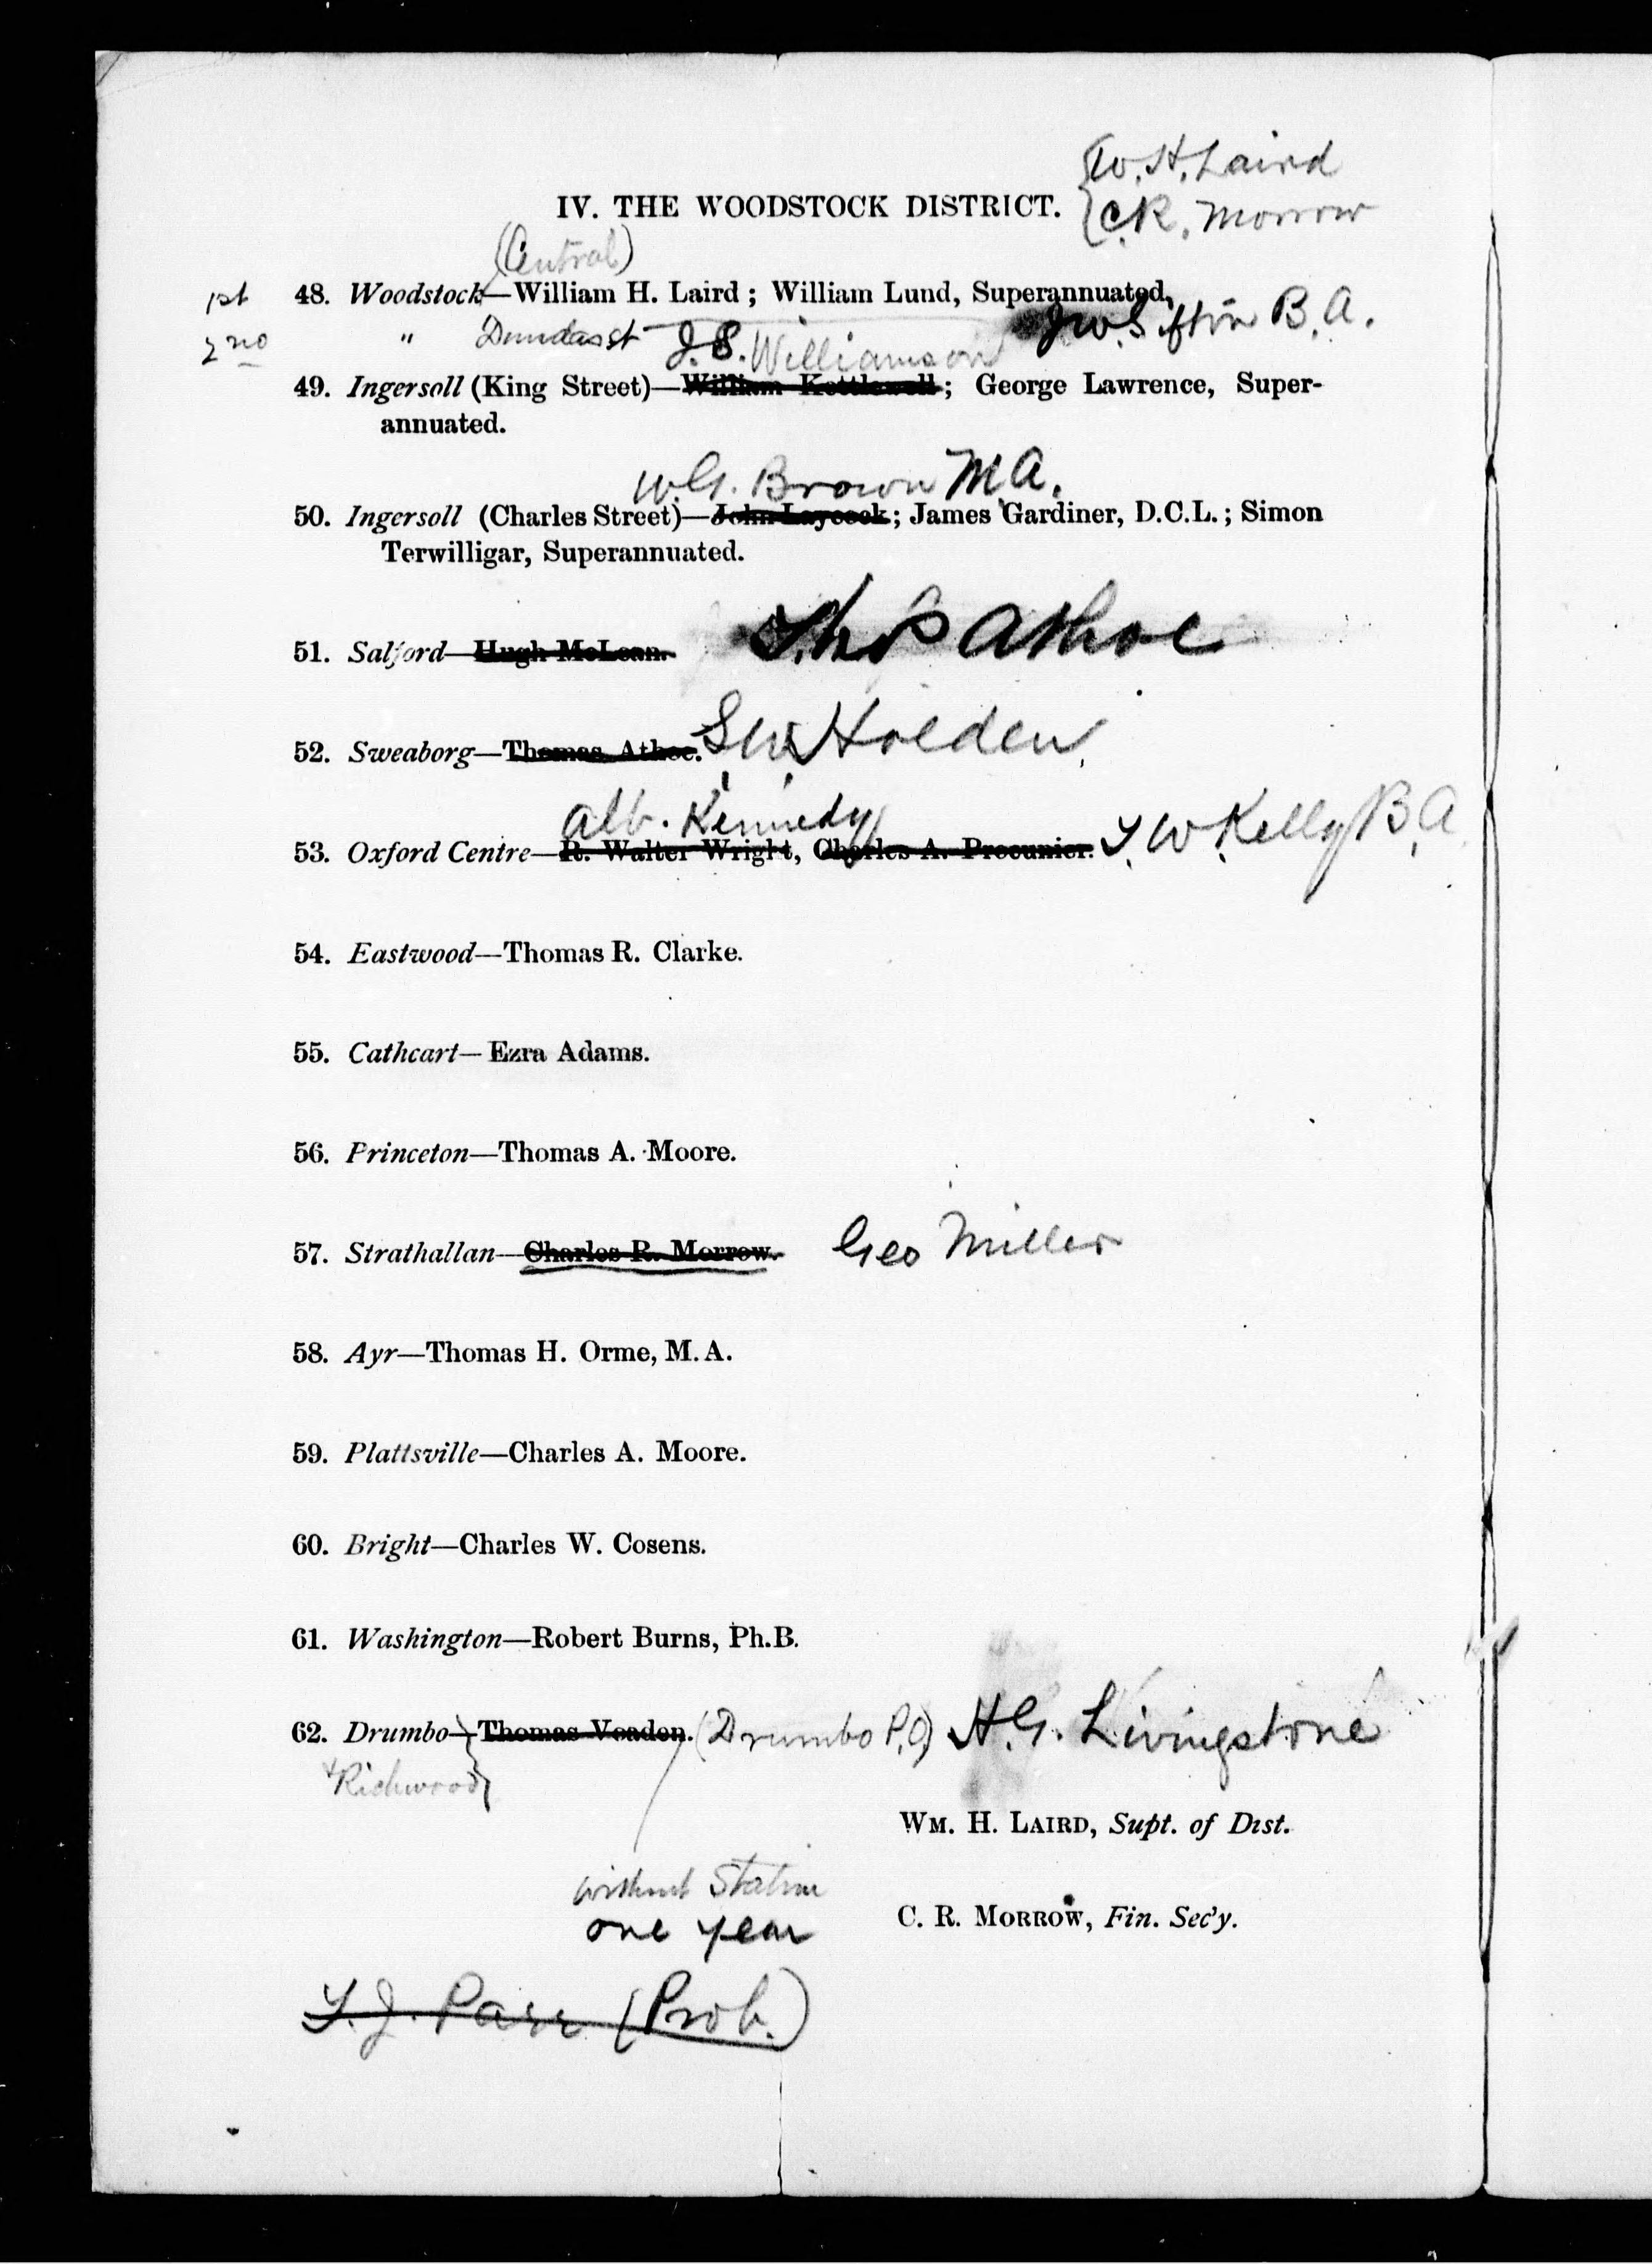 W. H. Laird
IV. THE WOODSTOCK DISTRICT.
C. R. Morrow
(Central)
1st 48. Woodstock—William H. Laird; William Lund, Superannuated,
2nd " Dundas st J. W. Sifton B. A.
J. S. Williamson
49. Ingersoll (King Street)—William Kettlewell; George Lawrence, Super-
annuated.
W. G. Brown M. A.
50. Ingersoll (Charles Street)—John Laycock; James Gardiner, D.C.L.; Simon
Terwilligar, Superannuated.
51. Salford—Hugh McLean. Thos Athoe
52. Sweaborg—Thomas Athoe. S. W. Holden
Alb. Kennedy
53. Oxford Centre—R. Walter Wright, Charles A. Procunier. T. W. Kelly B. A
54. Eastwood—Thomas R. Clarke.
55. Cathcart—Ezra Adams.
56. Princeton—Thomas A. Moore.
57. Strathallan—Charles R. Morrow. Geo Miller
58. Ayr—Thomas H. Orme, M.A.
59. Plattsville—Charles A. Moore.
60. Bright—Charles W. Cosens.
61. Washington—Robert Burns, Ph.B.
62. Drumbo—Thomas Voaden. (Drumbo P.O) H. G. Livingstone
+ Richwood
WM. H. LAIRD, Supt. of Dist.
without Station
one year
C. R. MORROW, Fin. Sec'y.
T. J. Parr (Prob.)